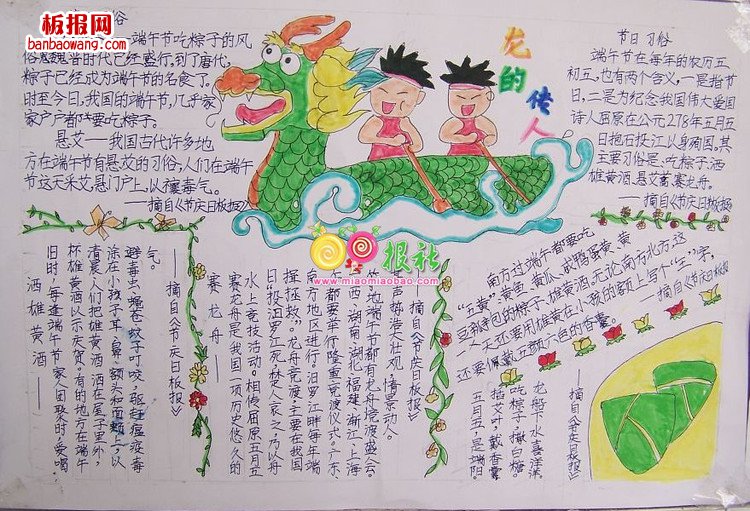 板报网
banbaowang.com
俗
端午节吃粽子的风
俗魏晋时代已经盛行,到了唐代,
粽子已经成为端午节的名食了。
时至今日,我国的端午节,几乎家
家户户都要吃粽子。
悬艾——我国古代许多地
方在端午节有悬艾的习俗,人们在端午
节这天采艾悬门户上,以攘毒气。
——摘自《节庆日板报》
龙的传人
节日习俗
端午节在每年的农历五
初五,也有两个含义,一是指节
日,二是为纪念我国伟大爱国
诗人屈原在公元278年五月五
日抱石投江以身殉国,其
主要习俗是:吃粽子.洒
雄黄酒.悬艾蒿赛龙舟。
——摘自《节庆日板报》
报社
www.miaomiaobao.com
洒雄黄酒——
旧时,每逢端午节家人团聚时,要喝一
杯雄黄酒以示庆贺。有的地方在端午
清晨人们把雄黄酒洒在屋子里外,
涂在小孩子耳、鼻、额头和面颊上,以
避毒虫、蝎苍蚊子叮咬,驱赶瘟疫毒
气。
——摘自《节庆日板报》
赛龙舟——
赛龙舟是我国一项历史悠久的
水上竞技活动。相传屈原五月五
日“投汨罗江死,楚人哀之,乃以舟
拯拯救”。龙舟竞渡主要在我国
南方地区进行。汨罗江畔每年端
午都要举行隆重竞渡仪式。广东、
西、湖南、湖北、福建、浙江、上海
等地端午节都有龙舟竞渡盛会。
声势浩大壮观,情景动人。
——摘自《节庆日板报》
南方过端午都要吃
“五黄”:黄鱼、黄瓜、咸鸭蛋黄、黄
豆制包的粽子、雄黄酒。无论南方北方,这
一天还要用雄黄在小孩的额上写个“王”字,
还要佩戴五颜六色的香囊。
——摘自《节庆日板报》
五月五,是端阳。
插艾叶,戴香囊。
吃粽子,撒白糖。
龙船下水喜洋洋
——摘自《节庆日板报》